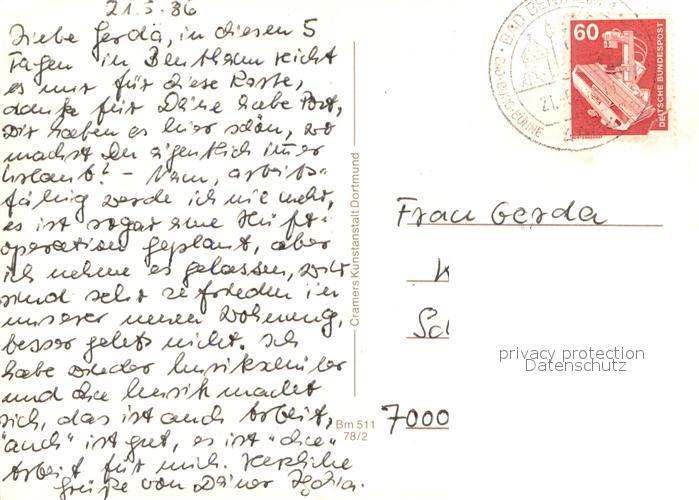 21.5.86
Liebe Gerda, in diesen 5
Tagen in Bentheim reicht
es nur für diese Karte,
danke für Deine liebe Post,
wir haben es hier schön, wo
machst Du eigentlich immer
Urlaub? – Nun, arbeits-
fähig werde ich nie mehr,
es ist sogar eine Hüft-
operation geplant, aber
ich nehme es gelassen, wir
sind sehr zufrieden in
unserer neuen Wohnung,
besser gehts nicht. Ich
habe wieder Musikschüler
und die Musik macht
sich, das ist auch Arbeit,
"auch" ist gut, es ist "die"
Arbeit für mich. Herzliche
Grüße von Deiner
Cramers Kunstanstalt Dortmund
Bm 511
78/2
BAD BENTHEIM
21.
60
DEUTSCHE BUNDESPOST
Frau Gerda
K
Sc
7000
privacy protection
Datenschutz